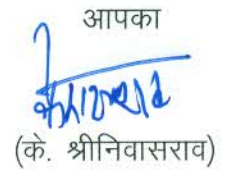 आपका
(के. श्रीनिवासराव)